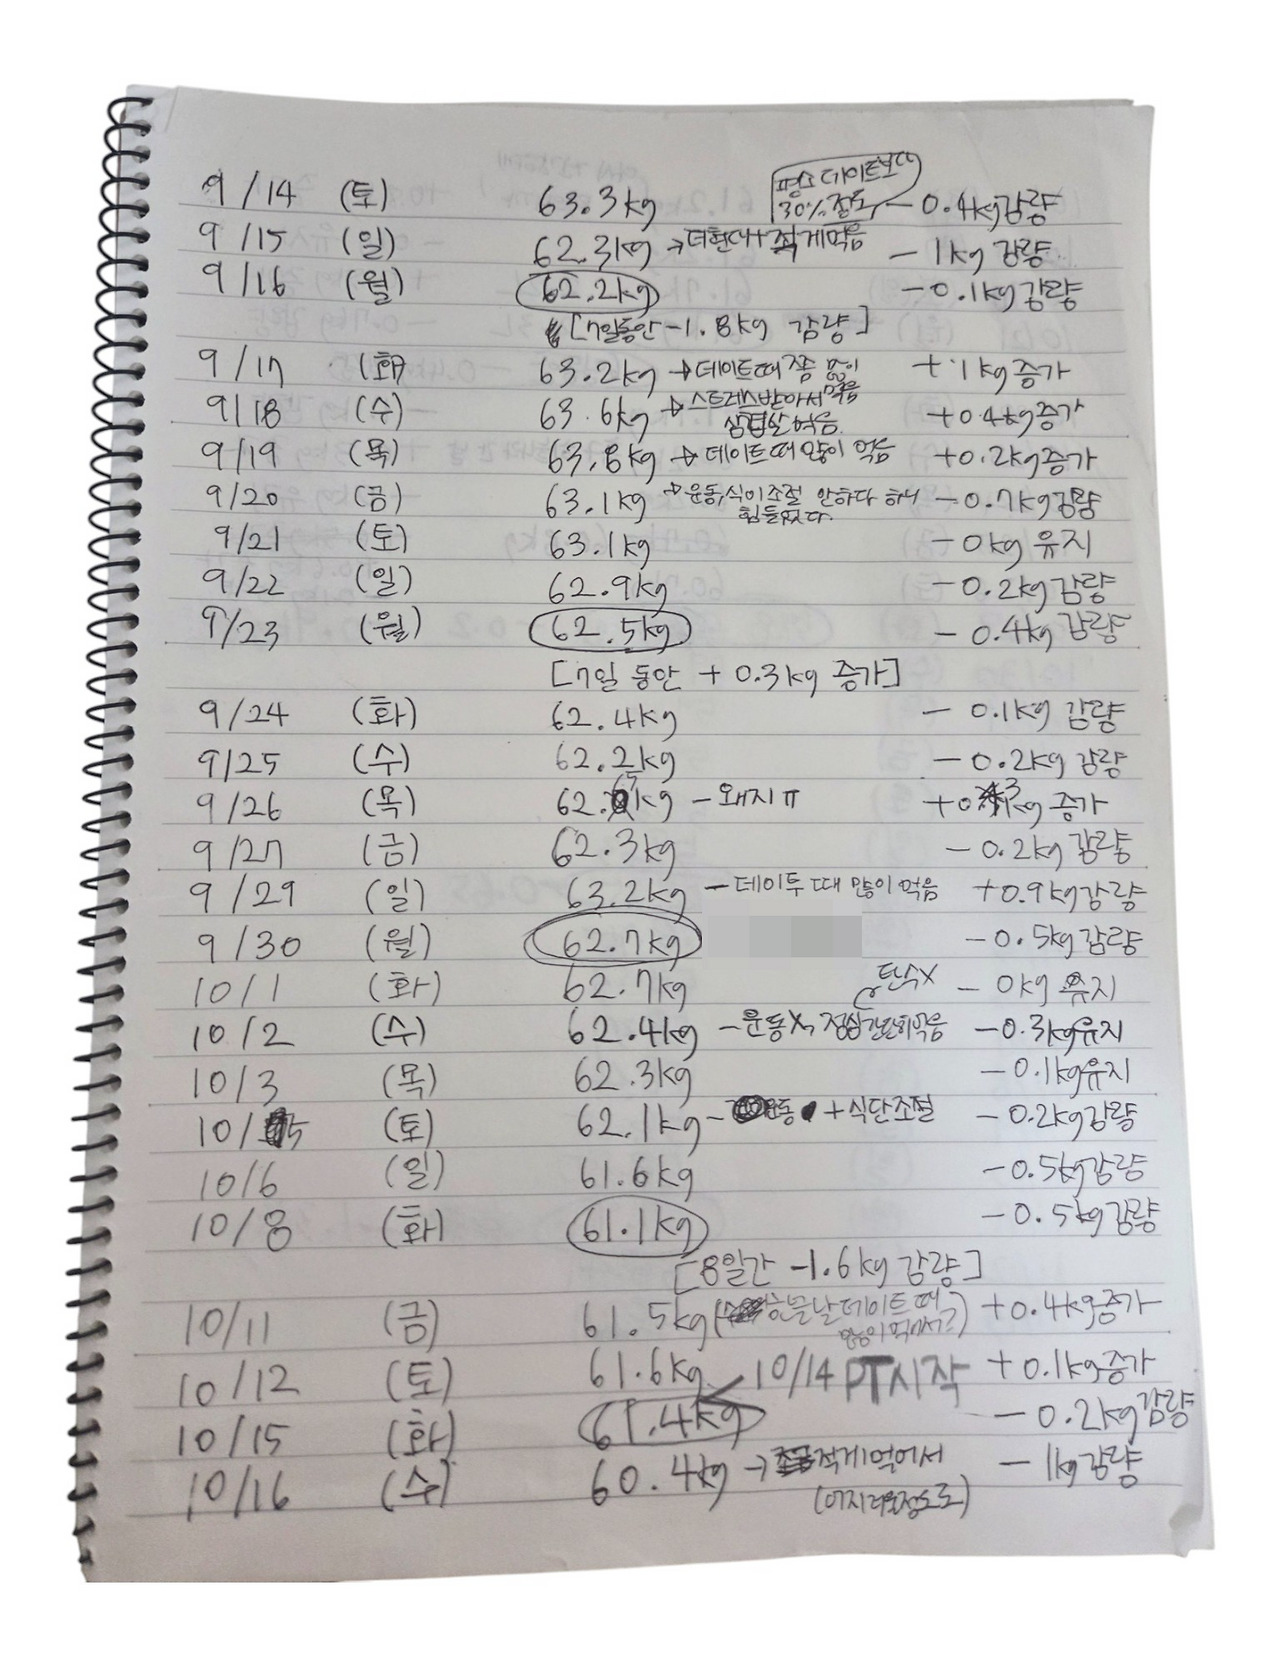 9/14 (토) 63.3kg 평소 데이트보다 30%정도 - 0.4kg감량
9/15 (일) 62.3kg → 더현대 + 적게먹음 - 1kg 감량
9/16 (월) 62.2kg - 0.1kg 감량
[7일동안 -1.8kg 감량]
9/17 (화) 63.2kg → 데이트때 좀 많이 먹음 + 1kg 증가
9/18 (수) 63.6kg → 스트레스받아서 삼겹살 먹음 +0.4kg증가
9/19 (목) 63.8kg → 데이트때 많이 먹음 +0.2kg증가
9/20 (금) 63.1kg → 운동,식이조절 안하다 하니 힘들었다. - 0.7kg감량
9/21 (토) 63.1kg - 0kg 유지
9/22 (일) 62.9kg - 0.2kg 감량
9/23 (월) 62.5kg - 0.4kg 감량
[7일 동안 + 0.3kg 증가]
9/24 (화) 62.4kg - 0.1kg 감량
9/25 (수) 62.2kg - 0.2kg 감량
9/26 (목) 62.5kg - 왜지ㅠ +0.3kg 증가
9/27 (금) 62.3kg - 0.2kg 감량
9/29 (일) 63.2kg - 데이투 때 많이 먹음 +0.9kg감량
9/30 (월) 62.7kg - 0.5kg감량
10/1 (화) 62.7kg - 0kg 유지
탄수X
10/2 (수) 62.4kg - 운동X, 점심간단히먹음 -0.3kg유지
10/3 (목) 62.3kg -0.1kg유지
10/5 (토) 62.1kg - 운동 + 식단조절 -0.2kg감량
10/6 (일) 61.6kg -0.5kg감량
10/8 (화) 61.1kg -0.5kg감량
[8일간 -1.6kg감량]
10/11 (금) 61.5kg (한글날 데이트때 많이 먹어서?) +0.4kg증가
10/12 (토) 61.6kg 10/14 PT시작 +0.1kg증가
10/15 (화) 61.4kg - 0.2kg감량
10/16 (수) 60.4kg → 적게먹어서 (어지러울정도로) - 1kg감량